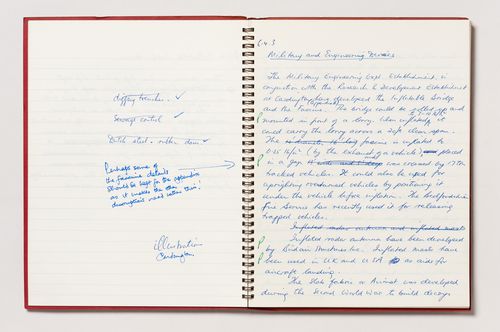 digging trenches. ✓
sewage control ✓
Dutch steel - rubber dam ✓
Perhaps some of
the fascine details
should be kept for the
as it makes the
description read rather thin!
illustration
6.4.3
Military and Engineering
The Military Engineering Expt. Establishment, in
conjunction with the Research & Development Establishment
at Cardington developed the Inflatable Bridge
and the Fascine. The bridge could be rolled up and
mounted in front of a lorry. When inflated, it
could carry the lorry across a clear span.
The fascine is inflated to
0.25 lb/in² (by the exhaust of a vehicle) placed
in a gap was crossed by 17 tn
tracked vehicles. It could also be used for
uprighting overturned vehicles by positioning it
under the vehicle before inflation. The Bedfordshire
fire Service has recently used it for releasing
trapped vehicles.
Inflated radar antenna and inflated masts
Inflated radar antenna have been developed
by Birdair Structures Inc. Inflated masts have
been used in UK and USA as aids for
aircraft landing.
The Slab fabric or Airmat was developed
during the Second World War to build decoys